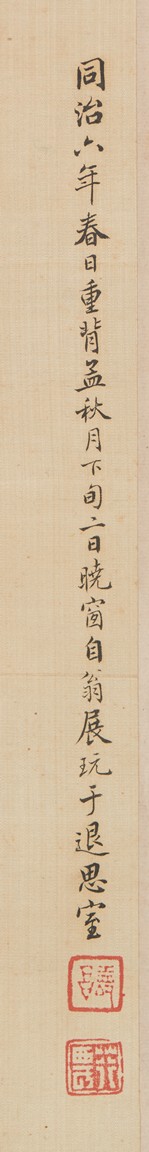 同治六年春日重背孟秋月下旬二日曉窗自翁展玩于退思室